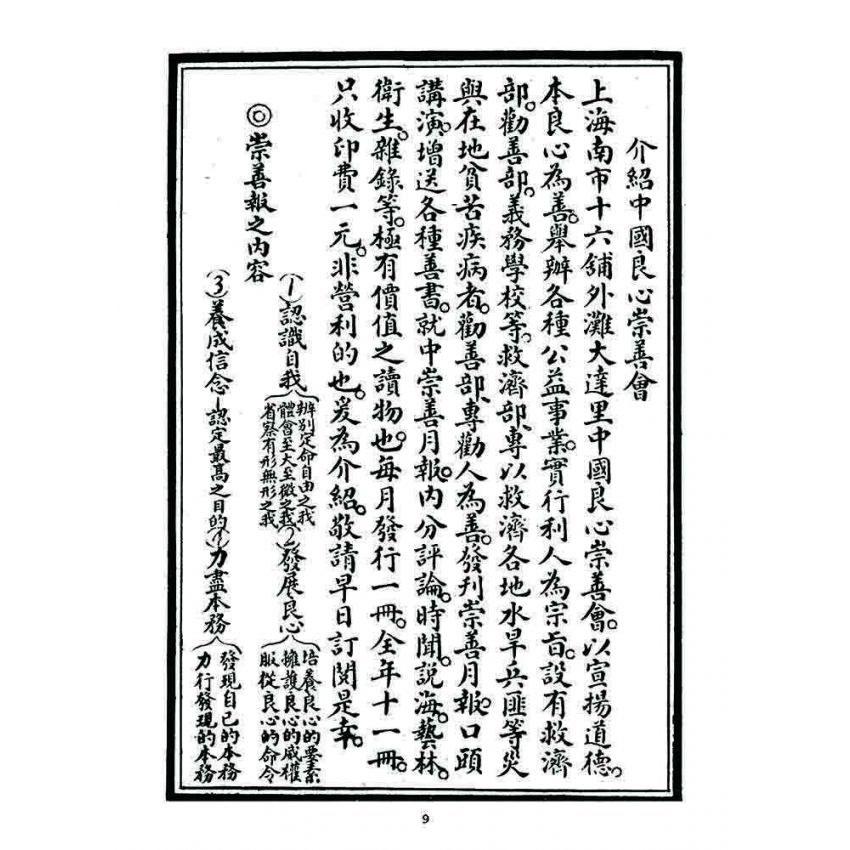 介紹中國良心崇善會
上海南市十六舖外灘大達里中國良心崇善會。以宣揚道德。
本良心為善。舉辦各種公益事業。實行利人為宗旨。設有救濟
部。勸善部。義務學校等。救濟部、專以救濟各地水旱兵匪等災
與在地貧苦疾病者。勸善部、專勸人為善。發刊崇善月報。口頭
講演。增送各種善書。就中崇善月報。內分評論。時聞。說海。藝林。
衛生。雜錄等。極有價值之讀物也。每月發行一冊。全年十一冊。
只收印費一元。非營利的也。爰為介紹。敬請早日訂閱是幸。
◎崇善報之內容
(1)認識自我
辨別定命自由之我
體會至大至微之我
省察有形無形之我
(2)發展良心
培養良心的要素
擁護良心的威權
服從良心的命令
(3)養成信念—認定最高之目的
(4)力盡本務
發現自己的本務
力行發現的本務
9